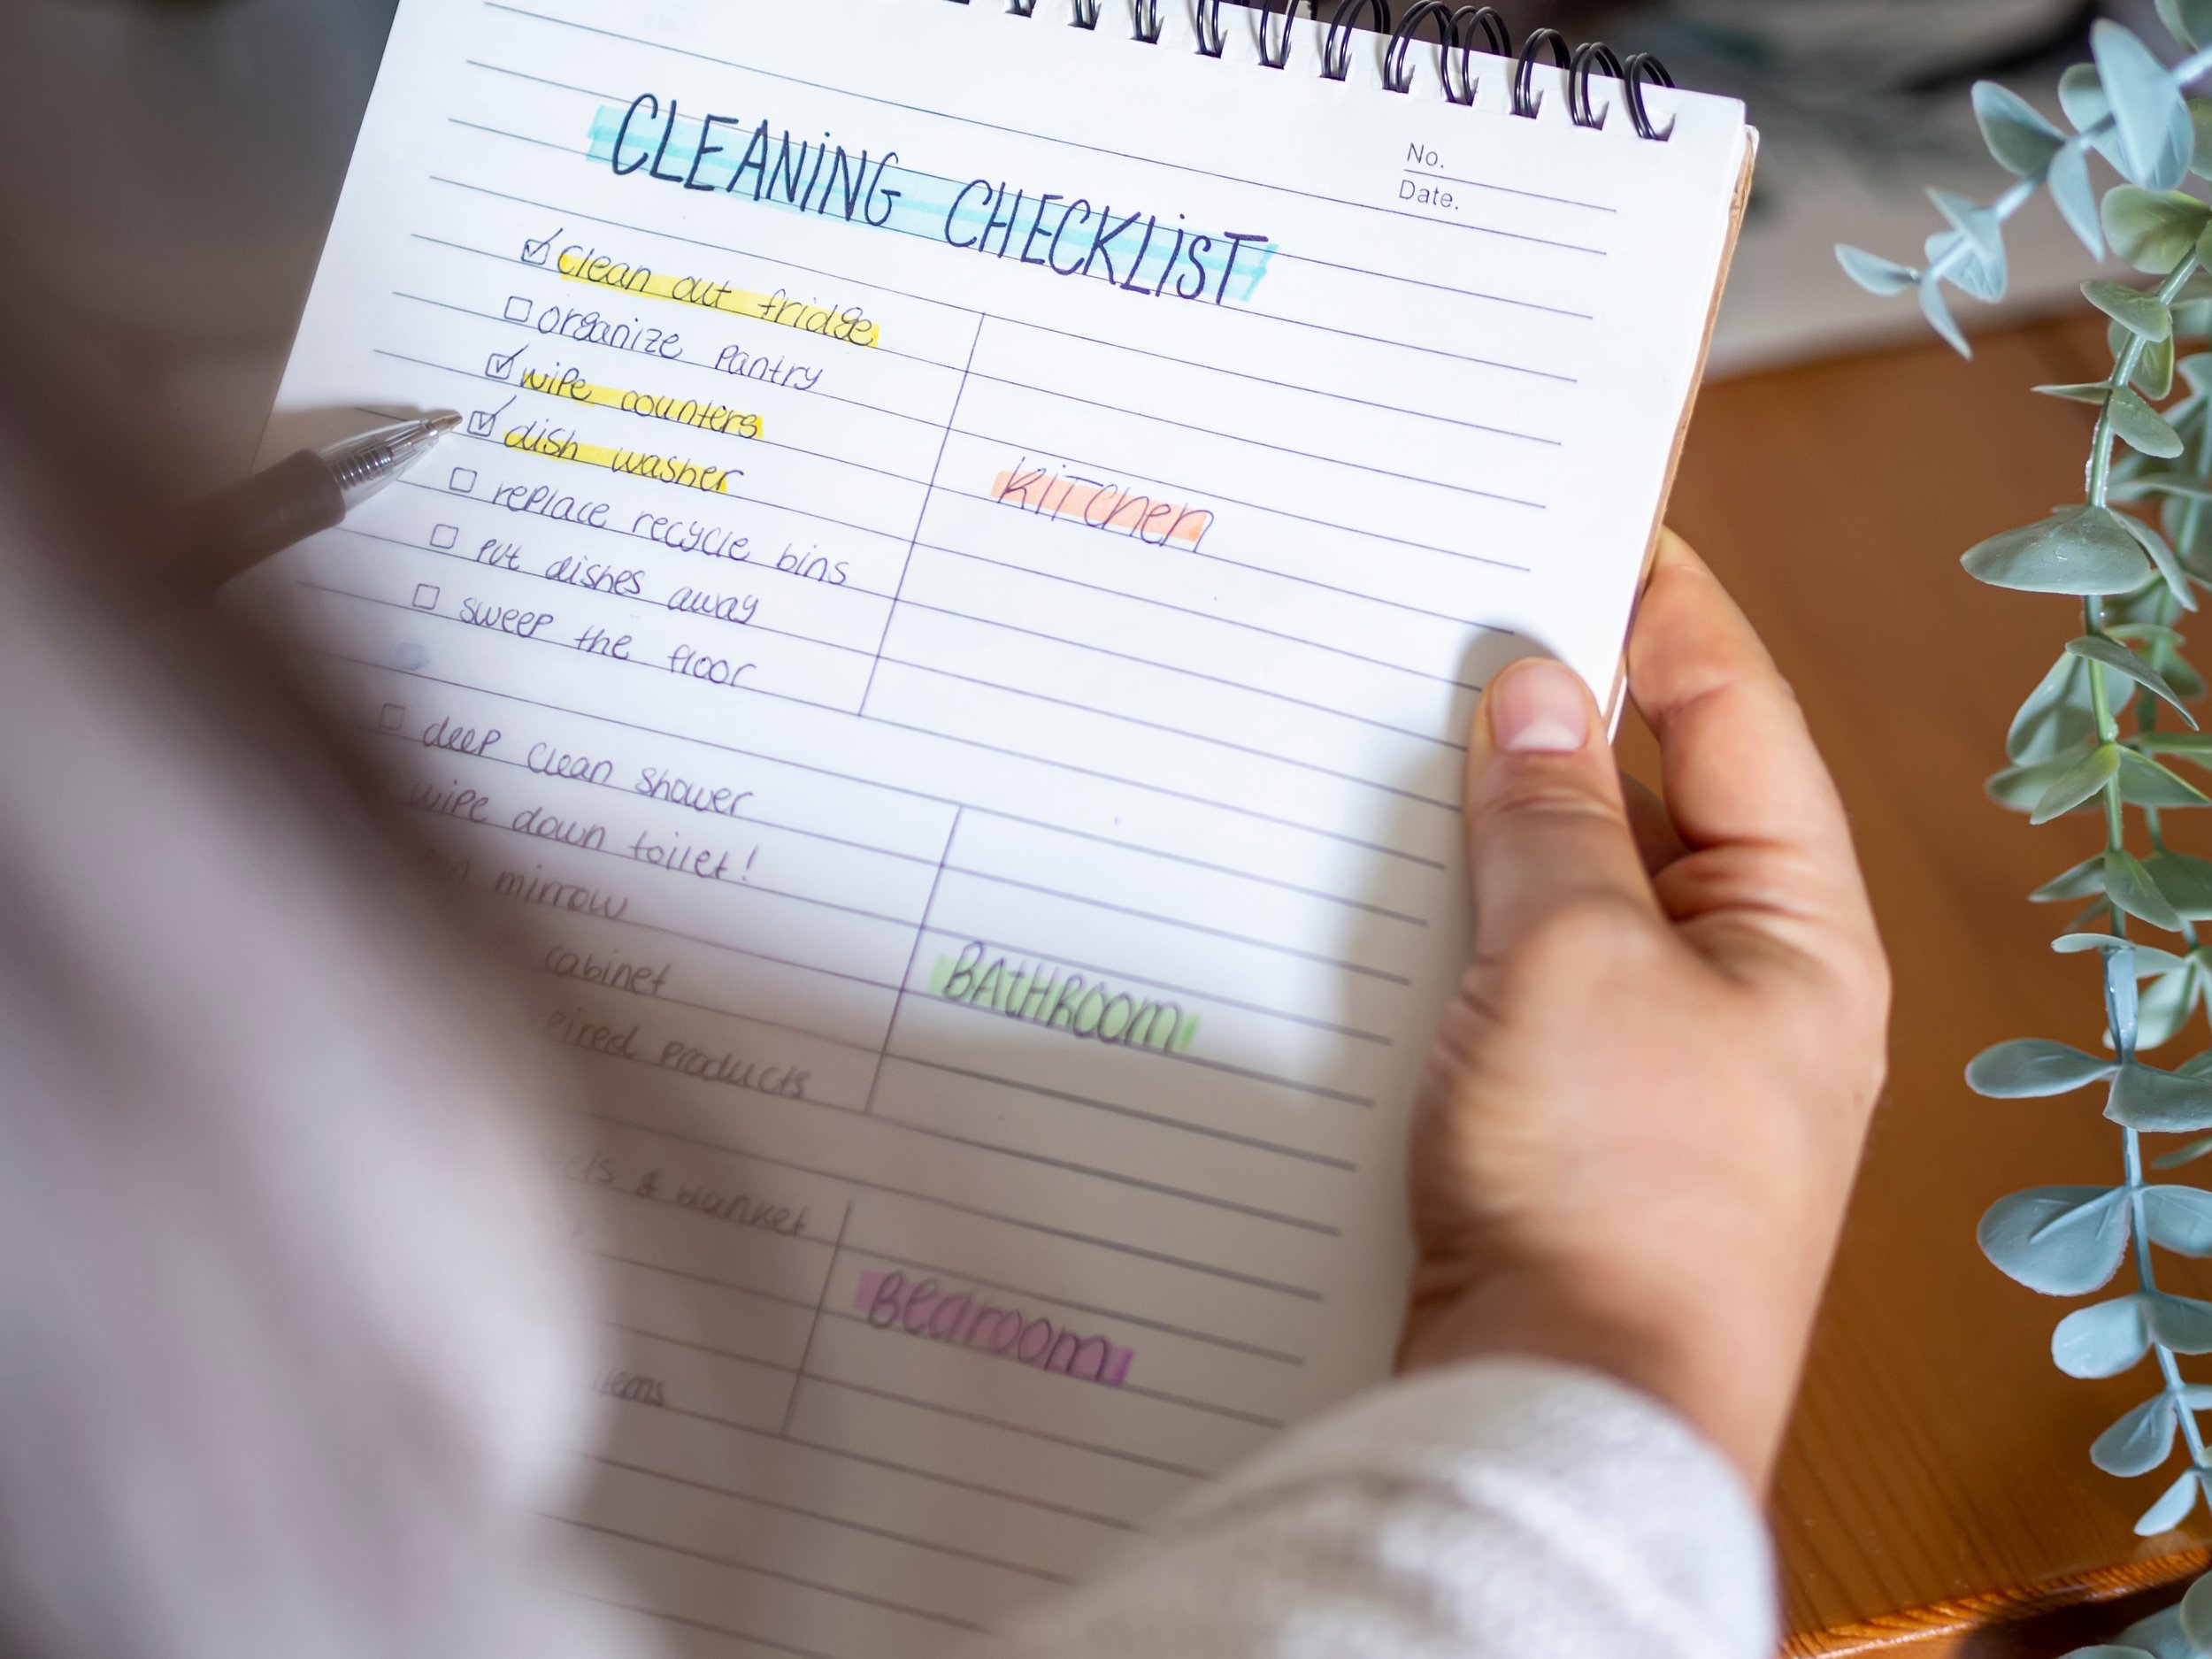 No.
Date.
CLEANING CHECKLIST
clean out fridge
organize pantry
wipe counters
dish washer
replace recycle bins
put dishes away
sweep the floor
KITCHEN
deep clean shower
wipe down toilet!
mirrow
cabinet
products
BATHROOM
& blanket
items
Bedroom